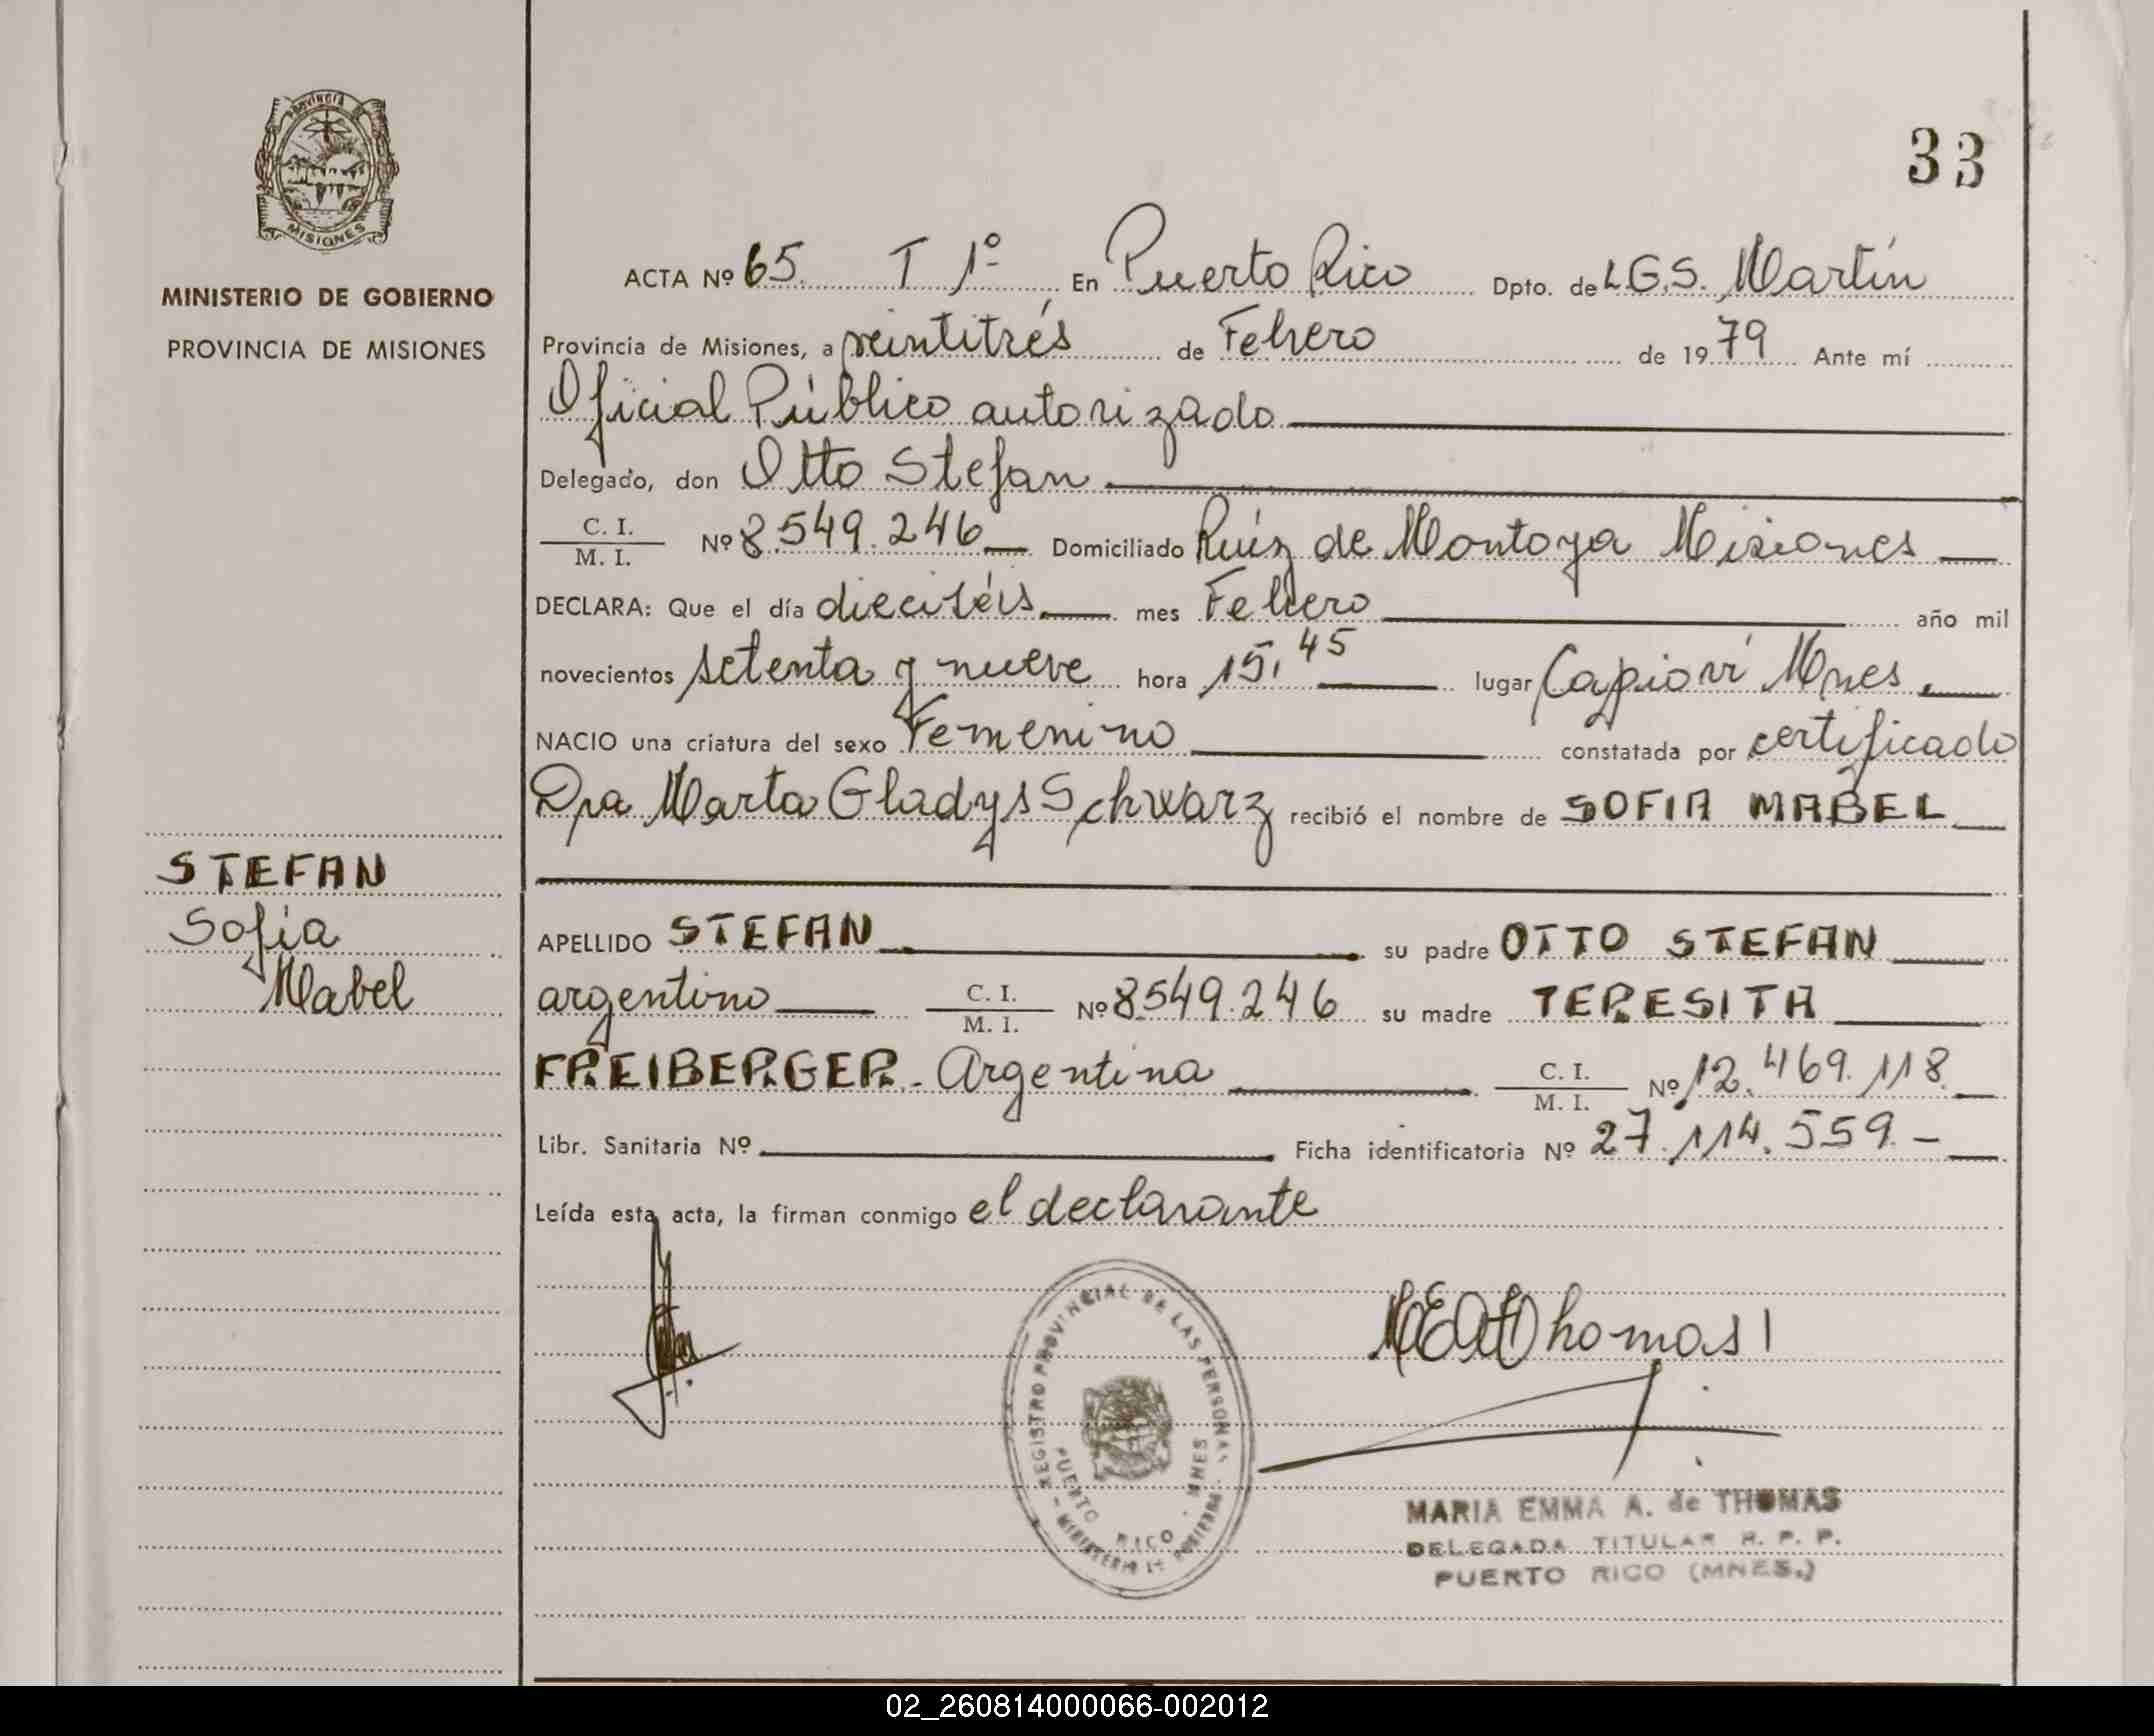 33
PROVINCIA DE
MISIONES
MINISTERIO DE GOBIERNO
PROVINCIA DE MISIONES
ACTA Nº 65. T 1º En Puerto Rico Dpto. de L.G.S. Martín
Provincia de Misiones, a veintitrés de Febrero de 1979 Ante mí
Oficial Público autorizado
Delegado, don Otto Stefan
C. I.
M. I. Nº 8.549.246 Domiciliado Ruíz de Montoya Misiones
DECLARA: Que el día dieciséis mes Febrero año mil
novecientos setenta y nueve hora 15,45 lugar Capioví Mnes.
NACIO una criatura del sexo Femenino constatada por certificado
Dra Marta Gladys Schwarz recibió el nombre de SOFIA MABEL
STEFAN
Sofia
Mabel
APELLIDO STEFAN su padre OTTO STEFAN
argentino C. I.
M. I. Nº 8549.246 su madre TERESITA
FREIBERGER - Argentina C. I.
M. I. Nº 12.469.118.
Libr. Sanitaria Nº Ficha identificatoria Nº 27.114.559.-
Leída esta acta, la firman conmigo el declarante
REGISTRO PROVINCIAL DE LAS PERSONAS
PUERTO RICO - MNES
MINISTERIO DE GOBIERNO
Thomas
MARIA EMMA A. de THOMAS
DELEGADA TITULAR R. P. P.
PUERTO RICO (MNES.)
02_260814000066-002012